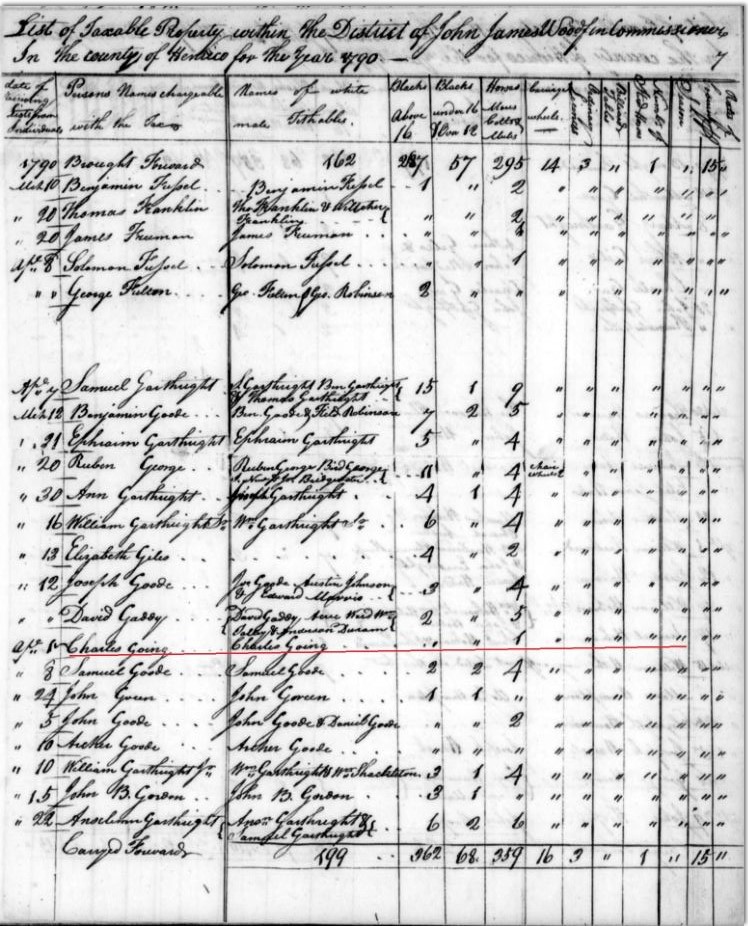 List of Taxable Property within the District of John James Woodfin Commissioner
In the county of Henrico for the Year 1790 — 7
date of receiving Lists from Individuals | Persons Names chargeable with the Tax | Names of white male Tithables. | Blacks Above 16 | Blacks under 16 & Over 12 | Horses Mares Colts & Mules | carriage wheels | Ordinary Licenses | Billiard Tables | Stud
1790 Brought Forward 162 287 57 295 14 3 " 1 " 15 "
Mch 10 Benjamin Fussel . . Benjamin Fussel 1 " 2 " " " " " " "
" 20 Thomas Franklin Tho Franklin &
Franklin " " 2 " " " " " " "
" 20 James Freeman James Freeman " " " " " " " " "
Apl 8 Solomon Fussel Solomon Fussel " " 1 " " " " " " "
" " George Fulton Geo. Fulton & Geo. Robinson 2 " " " " " " " " "
Apl 7 Samuel Garthright S. Garthright Ben Garthright
& Thomas Garthright 15 1 9 " " " " " " "
Mch 12 Benjamin Goode Ben. Goode & Robinson 7 2 5 " " " " " " "
" 21 Ephraim Garthright Ephraim Garthright 5 " 4 " " " " " " "
" 20 Reuben George Reuben George Bird George
Bridgwater 11 " 4 chair wheels 2 " " " " " "
" 30 Ann Garthright Joseph Garthright 4 1 4 " " " " " " "
" 16 William Garthright Sr Wm Garthright Sr 6 " 4 " " " " " " "
" 13 Elizabeth Giles 4 " 2 " " " " " " "
" 12 Joseph Goode Jos Goode Austin Johnson
& Edward Morris 3 " 4 " " " " " " "
" " David Gaddy David Gaddy Wm
& Anderson 2 " 5 " " " " " " "
Apl 1 Charles Going Charles Going " " 1 " " " " " " "
" 8 Samuel Goode Samuel Goode 2 2 4 " " " " " " "
" 24 John Green John Goreen 1 1 " " " " " " " "
" 5 John Goode John Goode & Daniel Goode " " 2 " " " " " " "
" 10 Archer Goode Archer Goode " " " " " " " " " "
" 10 William Garthright Jr Wm Garthright & Wm Shackleton 3 1 4 " " " " " " "
" 15 John B. Gordon John B. Gordon 3 1 " " " " " " " "
" 22 Anselem Garthright Ansm Garthright &
Samuel Garthright 6 2 6 " " " " " " "
Carryed Forward 199 362 68 359 16 3 " 1 " 15 "